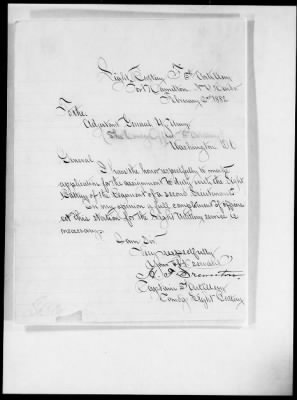 Light Battery F 5th Artillery
Fort Hamilton N.Y. Harbor
February 2nd 1882
To the
Adjutant General U.S. Army
Washington D.C.
General
I have the honor respectfully to make
application for the assignment to duty with the Light
Battery of the Regiment of a second Lieutenant
In my opinion a full complement of officers
at this Station for the Light Artillery service is
necessary.
I am Sir
Very respectfully
Your Obt servant
Captain 5th Artillery
Comdg Light Battery